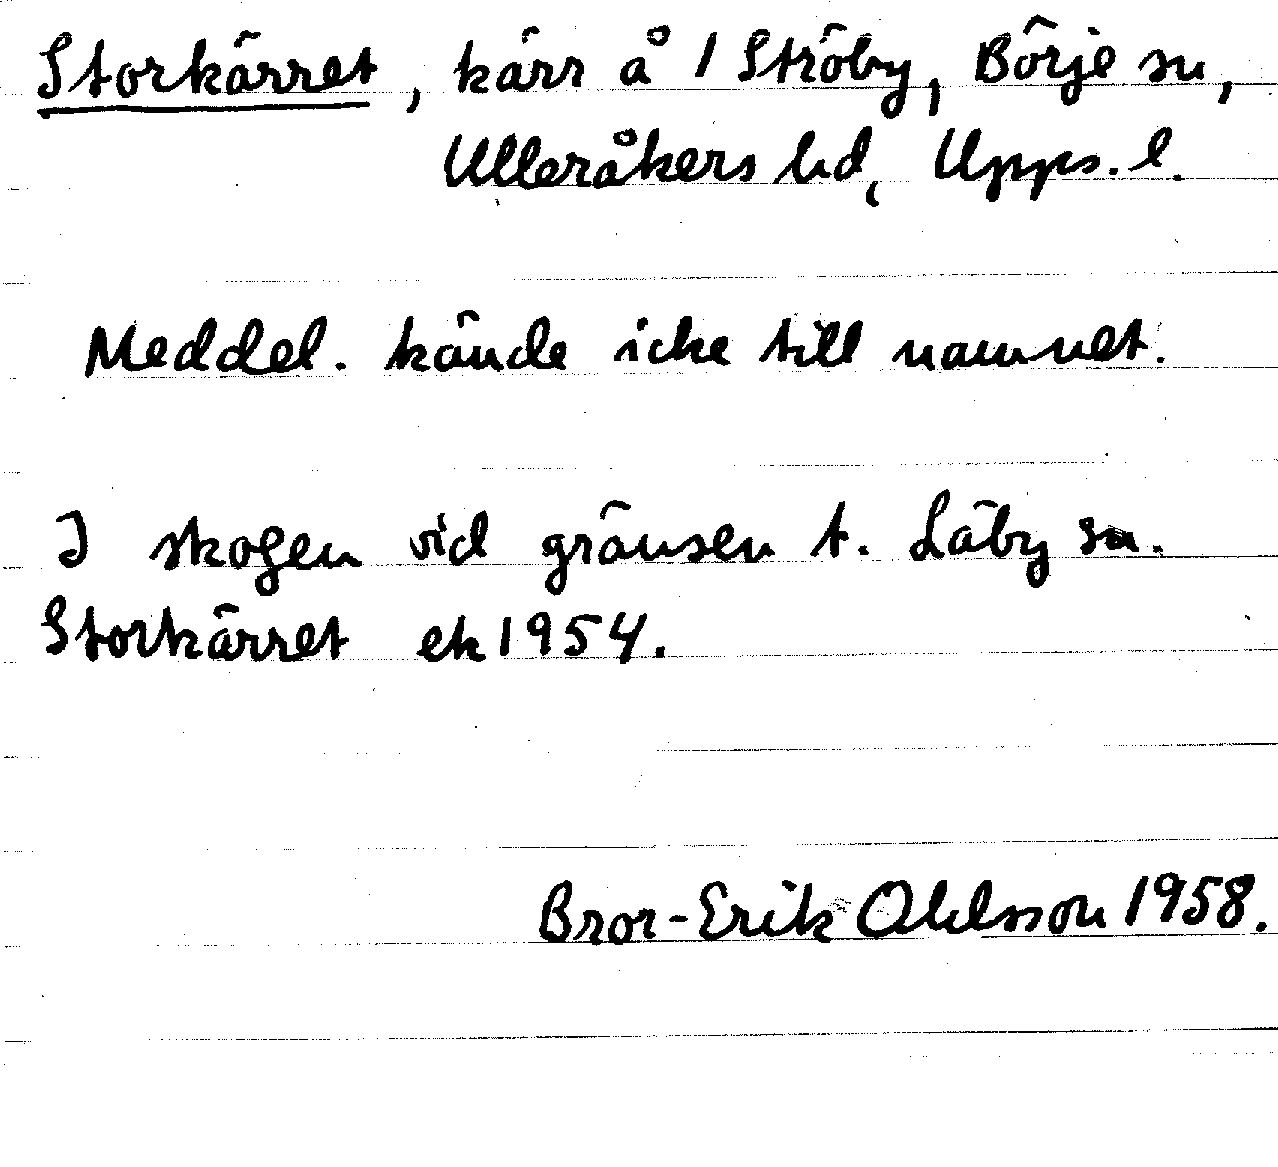 Storkärret, kärr å 1 Ströby, Börje sn,
Ulleråkers hd, Upps. l.
Meddel. kände icke till namnet.
I skogen vid gränsen t. Läby sn.
Storkärret ek 1954.
Bror-Erik Ohlsson 1958.